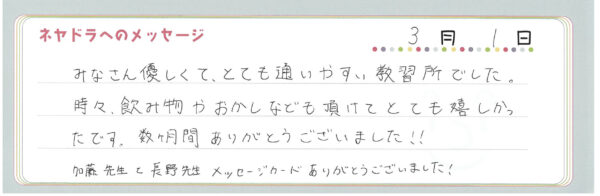 ネヤドラへのメッセージ 3月1日
みなさん優しくて、とても通いやすい教習所でした。
時々、飲み物やおかしなども頂けてとても嬉しかっ
たです。数ヶ月間ありがとうございました!!
加藤先生と長野先生メッセージカードありがとうございました!